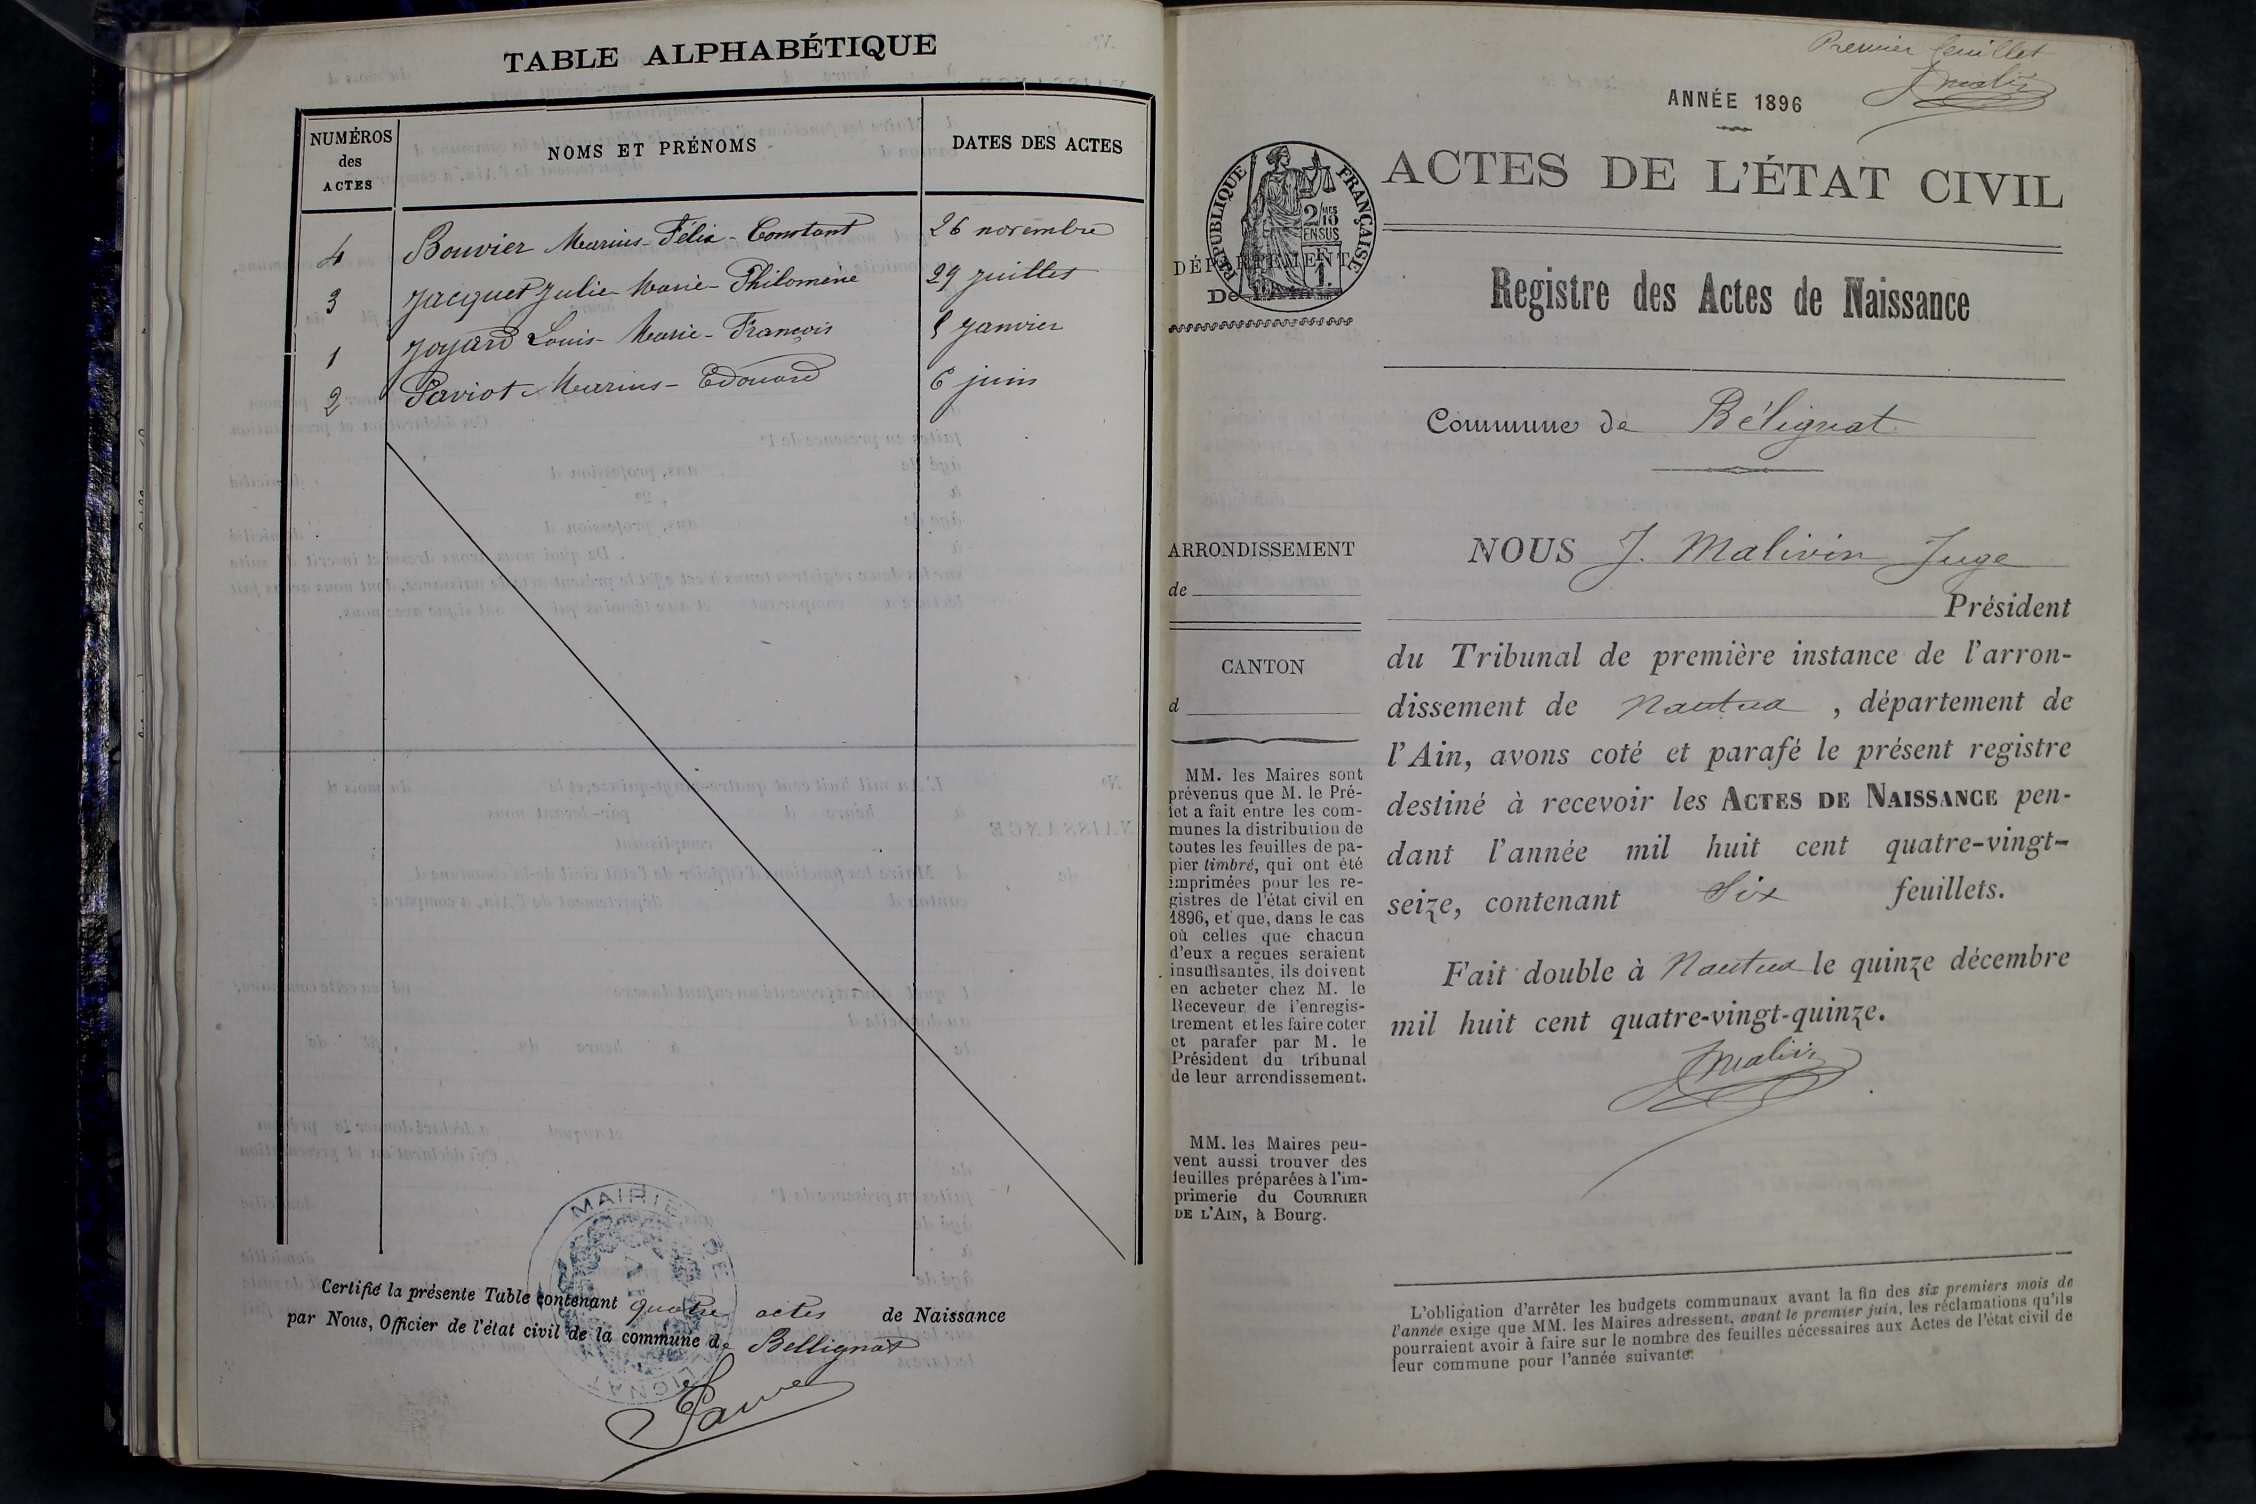 TABLE ALPHABÉTIQUE
NUMÉROS
des
ACTES
NOMS ET PRÉNOMS
DATES DES ACTES
4 Bouvier Marius-Félix-Constant 26 novembre
3 Jacquet Julie-Marie-Philomène 29 juillet
1 Joyard Louis-Marie-François 8 janvier
2 Paviot Marius-Edouard 6 juin
Certifié la présente Table contenant quatre actes de Naissance
par Nous, Officier de l'état civil de la commune de Bellignat
MAIRIE DE
Premier feuillet
ANNÉE 1896
ACTES DE L'ÉTAT CIVIL
RÉPUBLIQUE FRANÇAISE
2/10 MES
EN SUS
DÉPARTEMENT
De l'Ain
Registre des Actes de Naissance
Commune de Bélignat
ARRONDISSEMENT
de
CANTON
d
MM. les Maires sont
prévenus que M. le Pré-
fet a fait entre les com-
munes la distribution de
toutes les feuilles de pa-
pier timbré, qui ont été
imprimées pour les re-
gistres de l'état civil en
1896, et que, dans le cas
où celles que chacun
d'eux a reçues seraient
insuffisantes, ils doivent
en acheter chez M. le
Receveur de l'enregis-
trement et les faire coter
et parafer par M. le
Président du tribunal
de leur arrondissement.
MM. les Maires peu-
vent aussi trouver des
feuilles préparées à l'im-
primerie du COURRIER
DE L'AIN, à Bourg.
NOUS J. Malivin Juge
Président
du Tribunal de première instance de l'arron-
dissement de Nantua, département de
l'Ain, avons coté et parafé le présent registre
destiné à recevoir les ACTES DE NAISSANCE pen-
dant l'année mil huit cent quatre-vingt-
seize, contenant Six feuillets.
Fait double à Nantua le quinze décembre
mil huit cent quatre-vingt-quinze.
L'obligation d'arrêter les budgets communaux avant la fin des six premiers mois de
l'année exige que MM. les Maires adressent, avant le premier juin, les réclamations qu'ils
pourraient avoir à faire sur le nombre des feuilles nécessaires aux Actes de l'état civil de
leur commune pour l'année suivante.